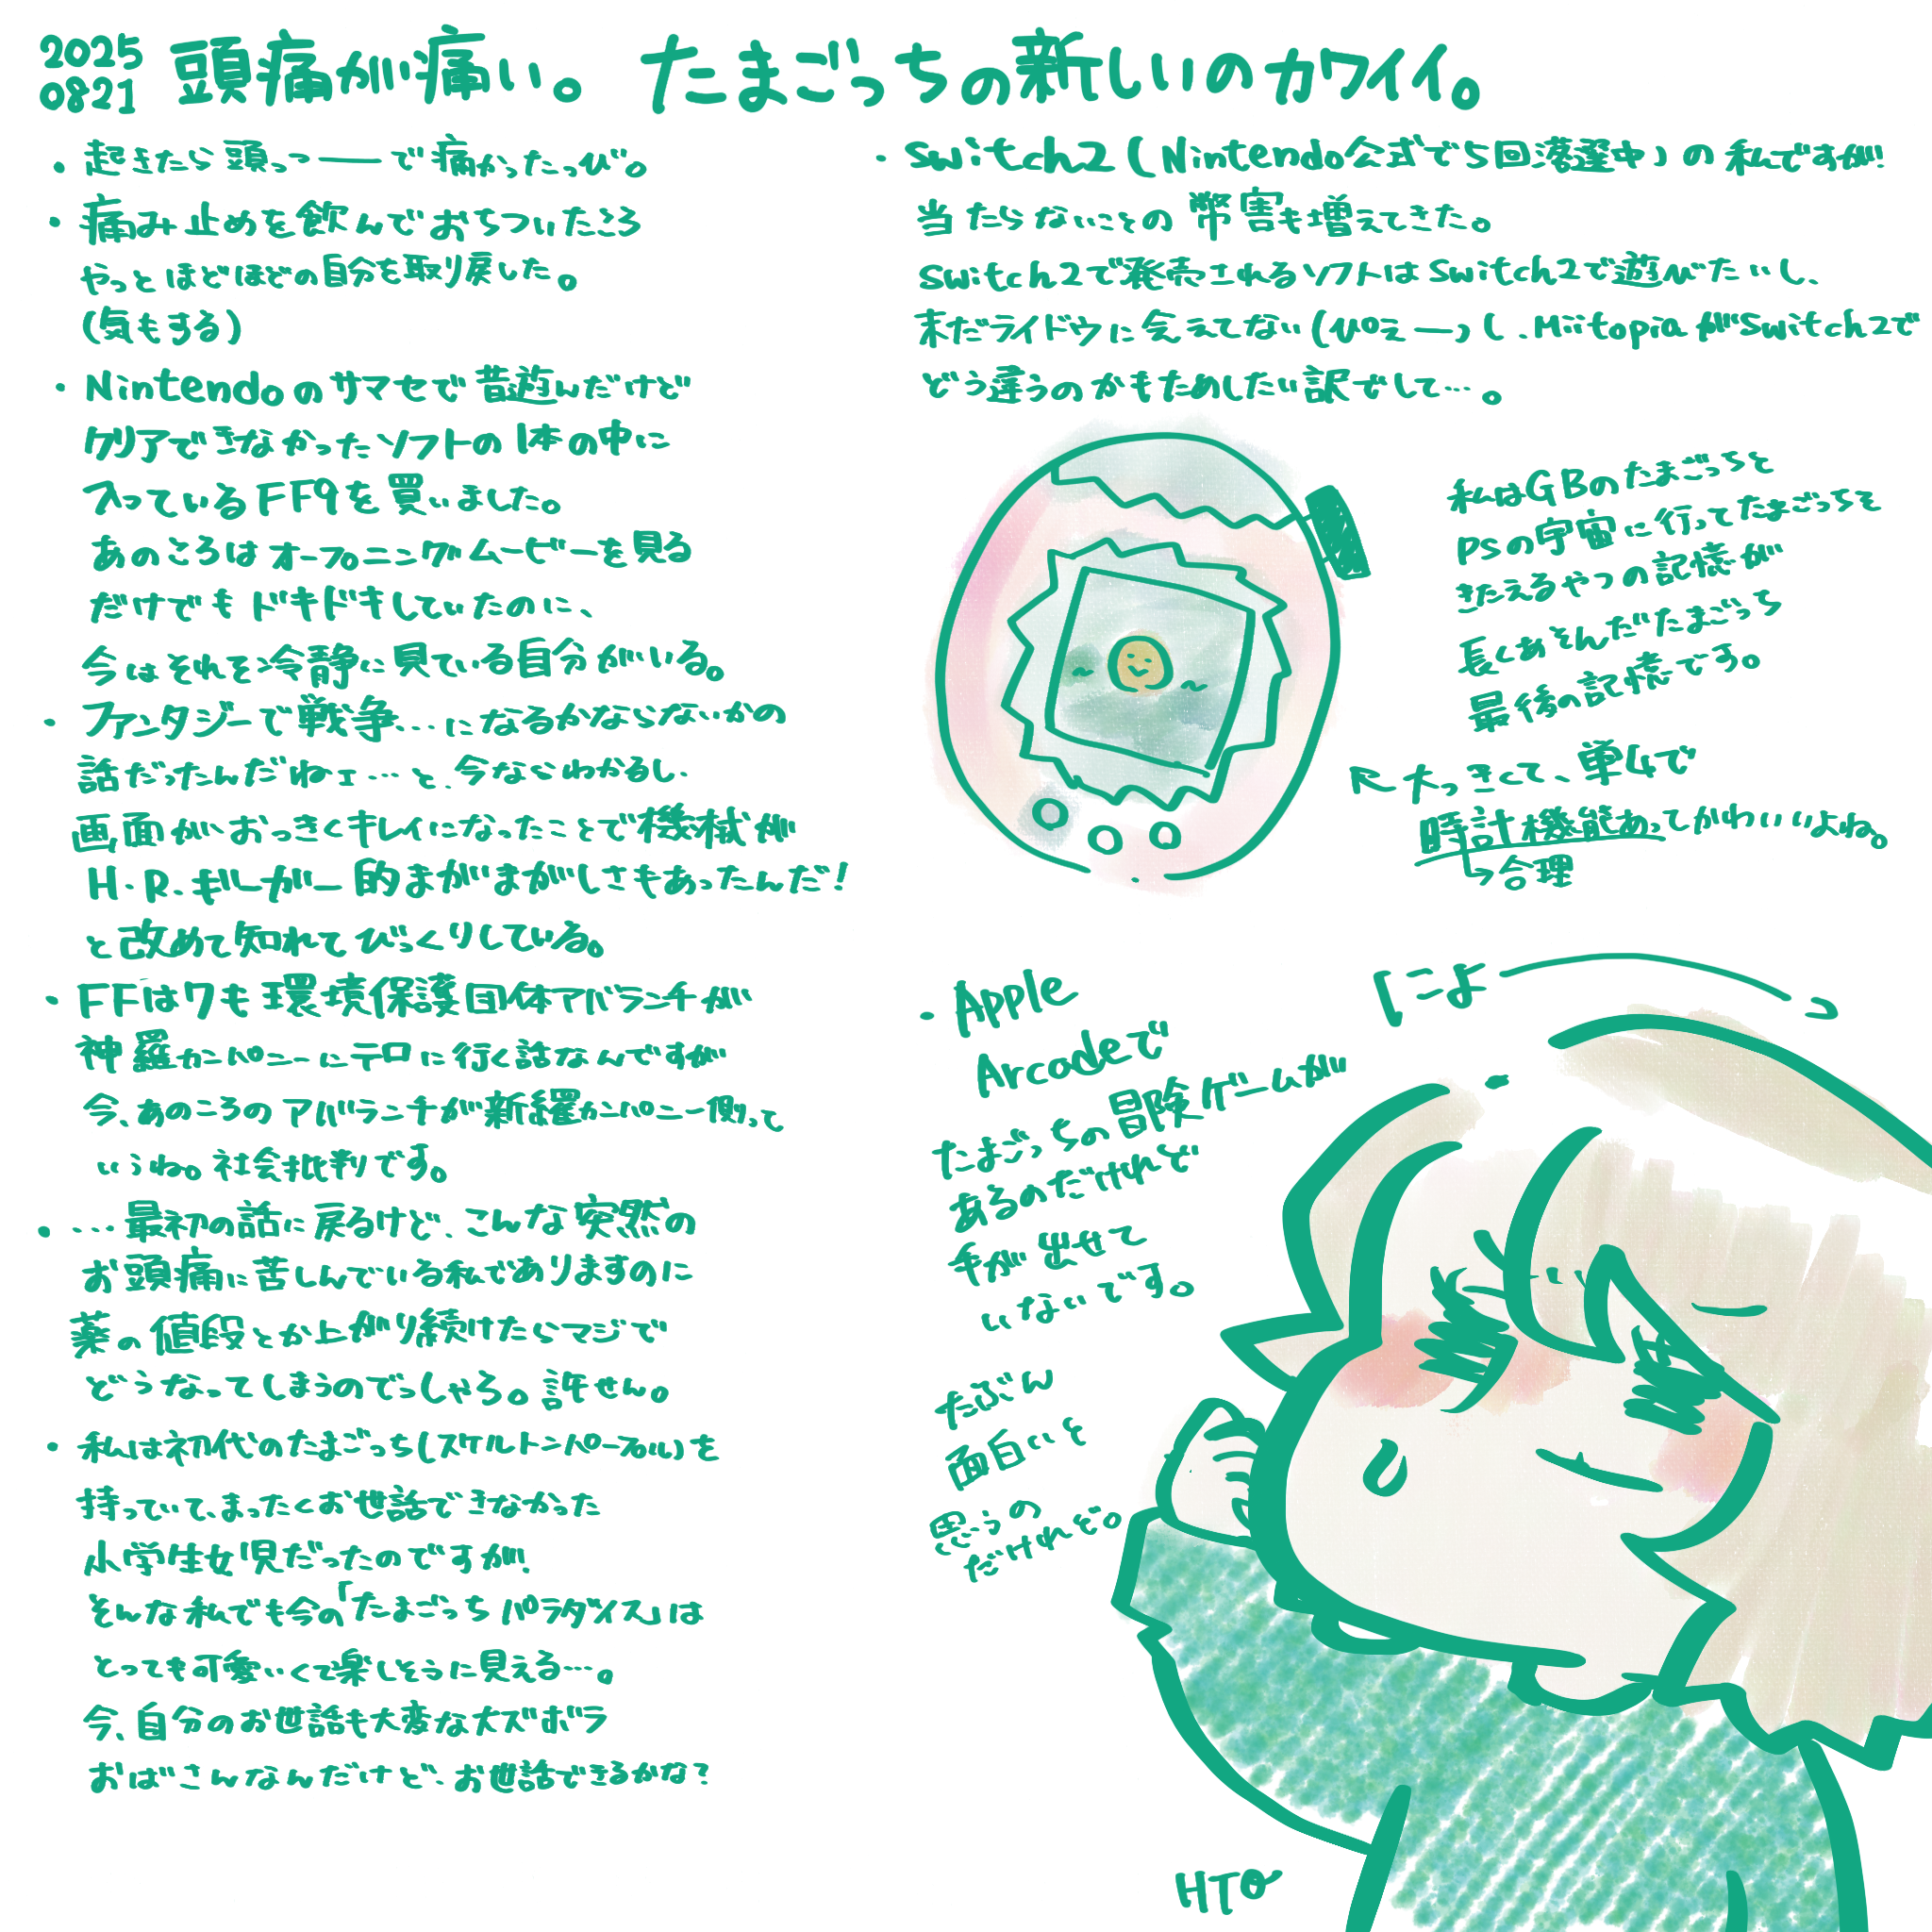 2025
0821
頭痛が痛い。 たまごっちの新しいのカワイイ。
・起きたら頭っつ――で痛かったっぴ。
・痛み止めを飲んでおちついたころ
やっとほどほどの自分を取り戻した。
(気もする)
・Nintendoのサマセで昔遊んだけど
クリアできなかったソフトの1本の中に
入っているFF9を買いました。
あのころはオープニングムービーを見る
だけでもドキドキしていたのに、
今はそれを冷静に見ている自分がいる。
・ファンタジーで戦争…になるかならないかの
話だったんだねェ…と、今ならわかるし、
画面がおっきくキレイになったことで機械が
H・R・ギーガー的まがまがしさもあったんだ!
と改めて知れてびっくりしている。
・FFは7も環境保護団体アバランチが
神羅カンパニーにテロに行く話なんですが
今、あのころのアバランチが新羅カンパニー側って
いうね。社会批判です。
・…最初の話に戻るけど、こんな突然の
お頭痛に苦しんでいる私でありますのに
薬の値段とか上がり続けたらマジで
どうなってしまうのでっしゃろ。許せん。
・私は初代のたまごっち(スケルトンパープル)を
持っていて、まったくお世話できなかった
小学生女児だったのですが!
そんな私でも今の「たまごっちパラダイス」は
とっても可愛いくて楽しそうに見える…。
今、自分のお世話も大変な大ズボラ
おばさんなんだけど、お世話できるかな?
・Switch2(Nintendo公式で5回落選中)の私ですが!
当たらないことの弊害も増えてきた。
Switch2で発売されるソフトはSwitch2で遊びたいし、
未だライドウに会えてない(ぴえー)し、MiitopiaがSwitch2で
どう違うのかもためしたい訳でして…。
私はGBのたまごっちと
PSの宇宙に行ってたまごっちを
きたえるやつの記憶が
長くあそんだたまごっち
最後の記憶です。
大っきくて、単4で
時計機能あってかわいいよね。
→合理
・Apple
Arcadeで
たまごっちの冒険ゲームが
あるのだけれど
手が出せて
いないです。
たぶん
面白いと
思うの
だけれど。
によ――っ
HTO